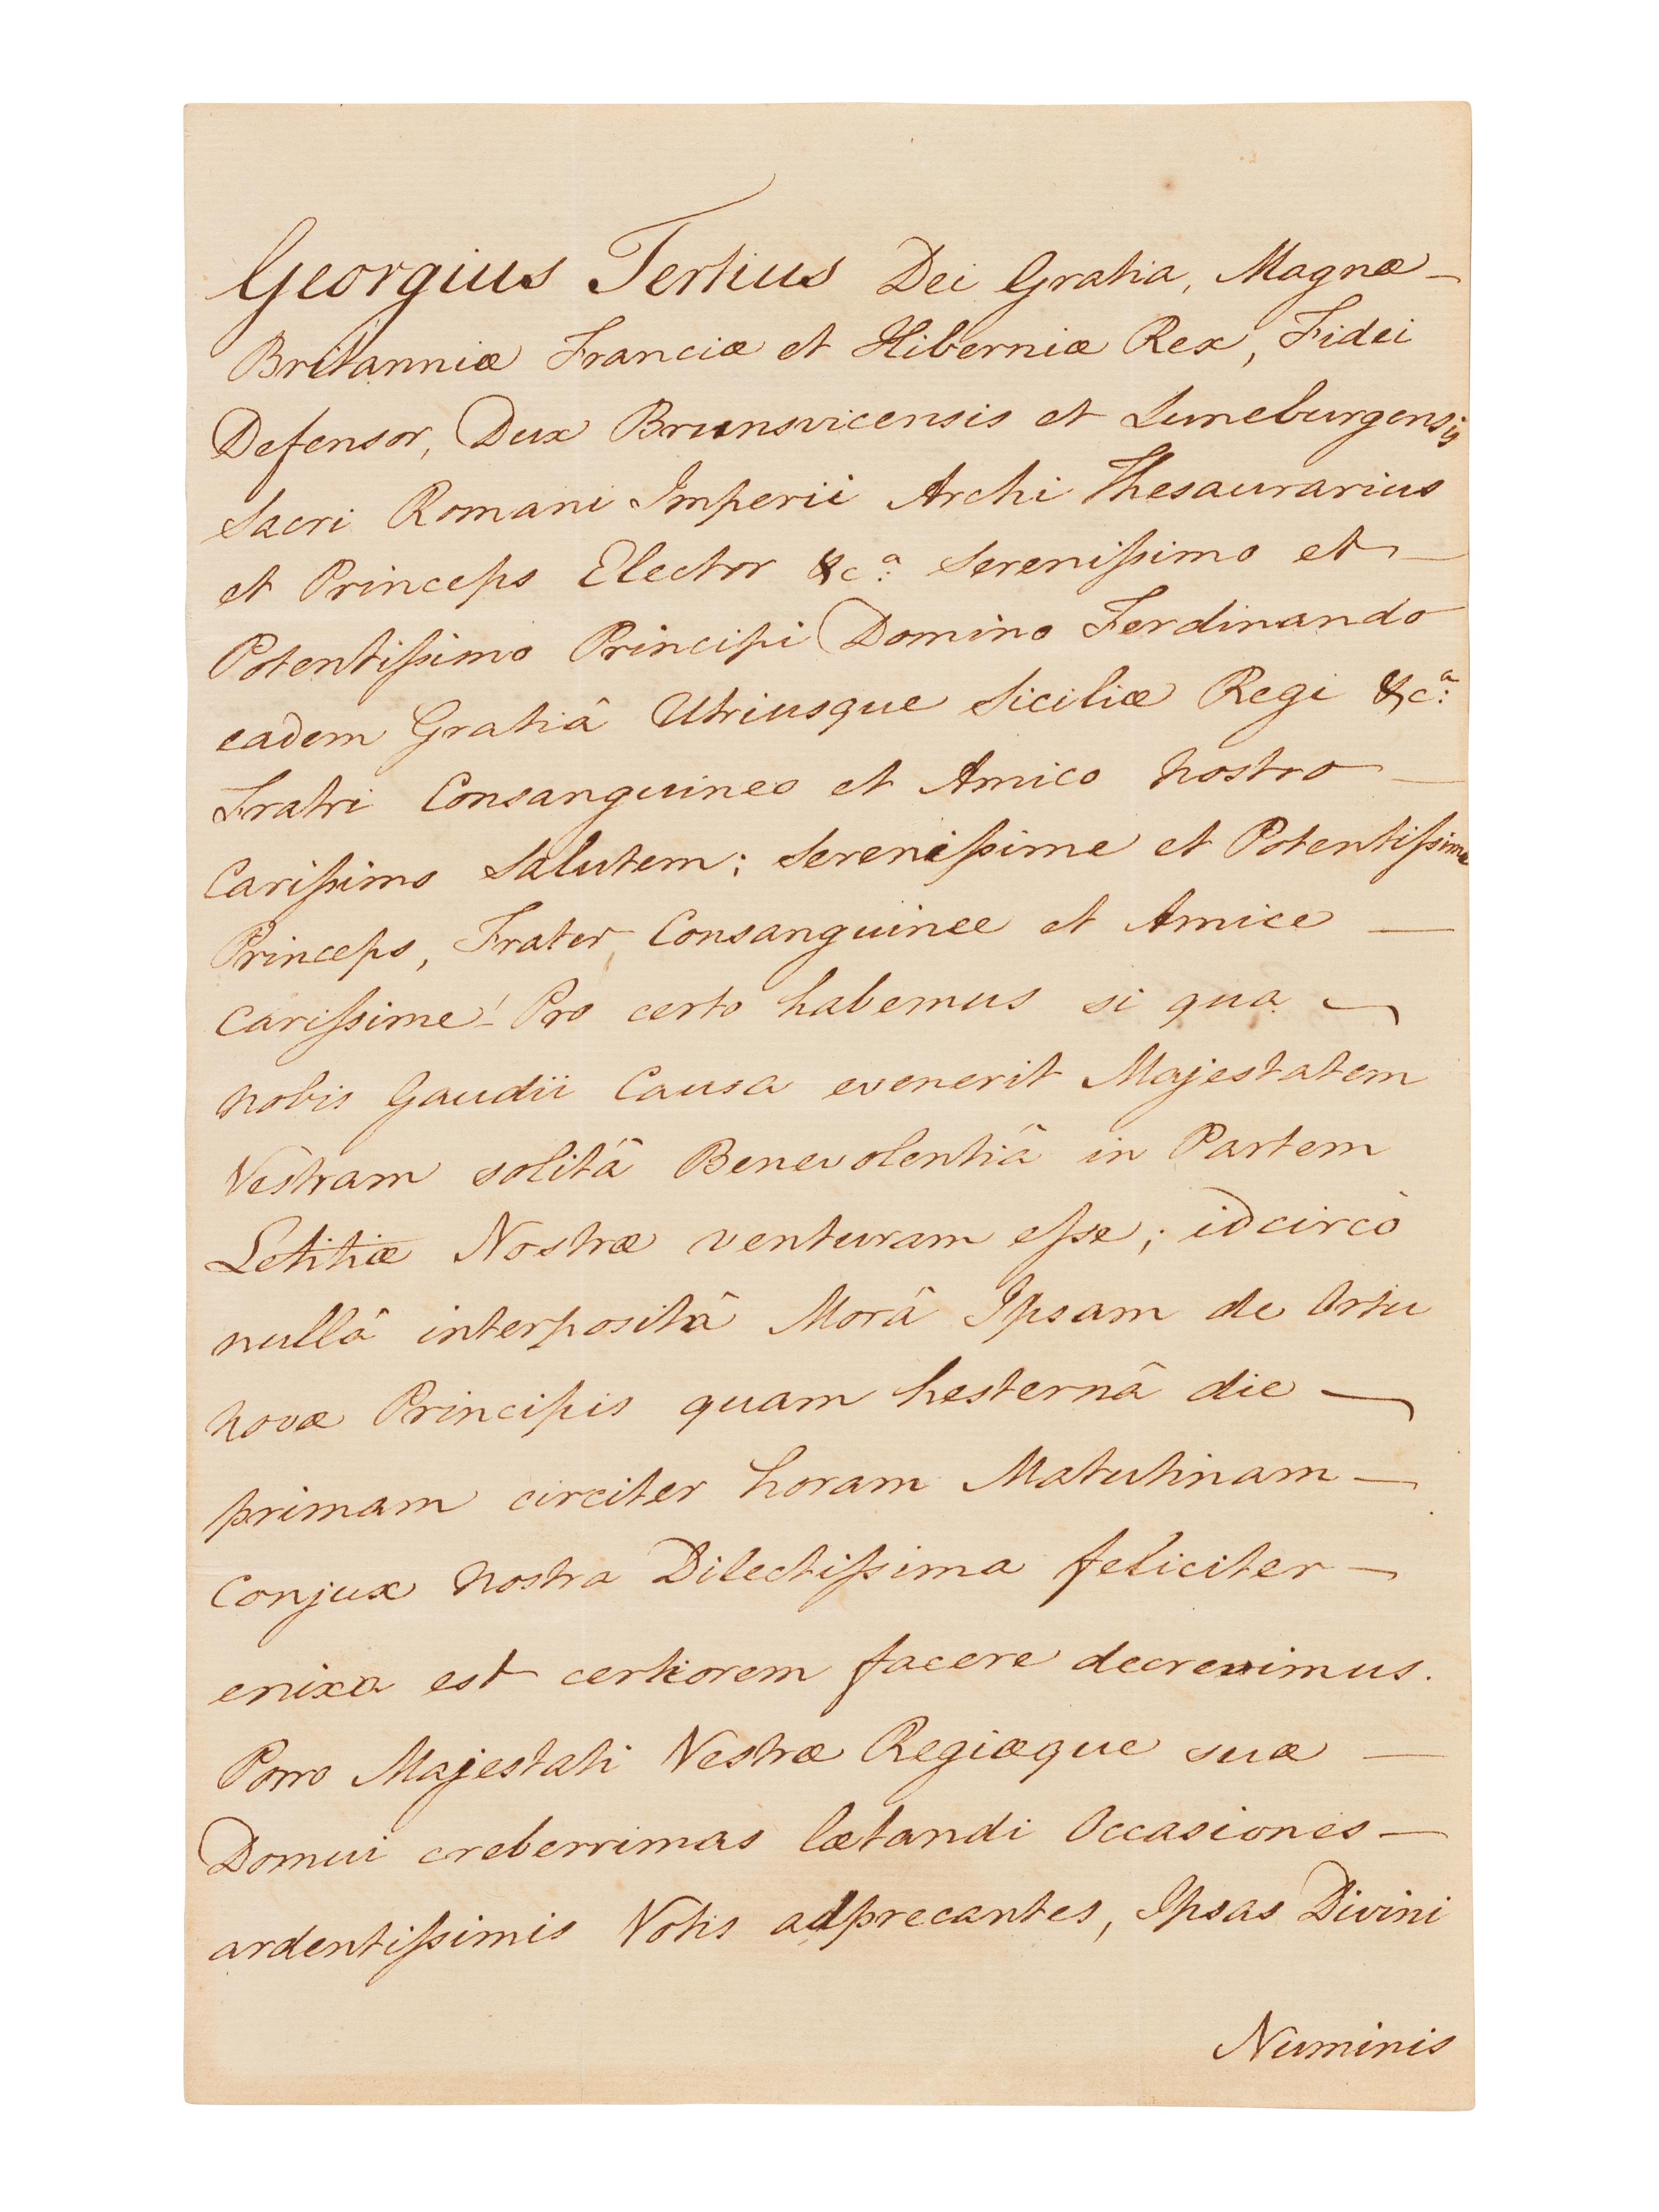 Georgius Tertius Dei Gratia, Magnæ —
Britanniæ Franciæ et Hiberniæ Rex, Fidei
Defensor, Dux Brunsvicensis et Luneburgensis
Sacri Romani Imperii Archi Thesaurarius
et Princeps Elector &c.ª Serenissimo et —
Potentissimo Principi Domino Ferdinando
eadem Gratiâ Utriusque Siciliæ Regi &c.ª:
Fratri Consanguineo et Amico Nostro —
Carissimo Salutem; Serenissime et Potentissime
Princeps, Frater, Consanguinee et Amice —
Carissime! Pro certo habemus si qua —
nobis Gaudii Causa evenerit Majestatem
Vestram solitâ Benevolentiâ in Partem
Letitiæ Nostræ venturam esse; idcircò
nullâ interpositâ Morâ Ipsam de Ortu
novæ Principis quam hesternâ die —
primam circiter horam Matutinam —
Conjux nostra Dilectissima feliciter —
enixa est certiorem facere decrevimus.
Porro Majestati Vestræ Regiæque suæ —
Domui creberrimas lætandi Occasiones —
ardentissimis Votis adprecantes, Ipsas Divini
Numinis